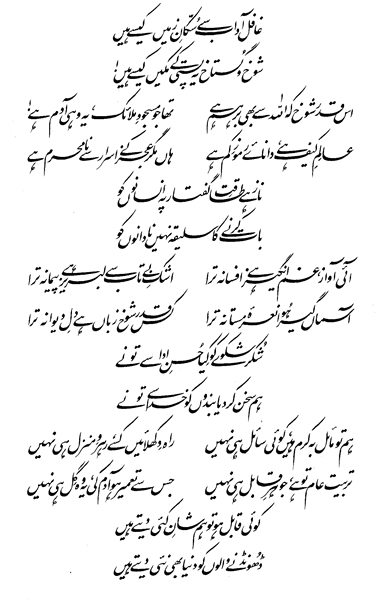 غافل آداب سے سکانِ زمیں کیسے ہیں
شوخ و گستاخ یہ پستی کے مکیں کیسے ہیں!
اس قدر شوخ کہ اللہ سے بھی برہم ہے تھا جو مسجودِ ملائک، یہ وہی آدم ہے!
عالمِ کیف ہے، دانائے رموزِ کم ہے ہاں مگر عجز کے اسرار سے نامحرم ہے
ناز ہے طاقتِ گفتار پہ انسانوں کو
بات کرنے کا سلیقہ نہیں نادانوں کو
آئی آواز غم انگیز ہے افسانہ ترا اشکِ بے تاب سے لبریز ہے پیمانہ ترا
آسماں گیر ہوا نعرۂ مستانہ ترا کس قدر شوخ زباں ہے دلِ دیوانہ ترا
شکر شکوے کو کیا حسنِ ادا سے تو نے
ہم سخن کر دیا بندوں کو خدا سے تو نے
ہم تو مائل بہ کرم ہیں کوئی سائل ہی نہیں راہ دکھلائیں کسے رہروِ منزل ہی نہیں
تربیت عام تو ہے جوہرِ قابل ہی نہیں جس سے تعمیر ہو آدم کی یہ وہ گل ہی نہیں
کوئی قابل ہو تو ہم شانِ کئی دیتے ہیں
ڈھونڈنے والوں کو دنیا بھی نئی دیتے ہیں